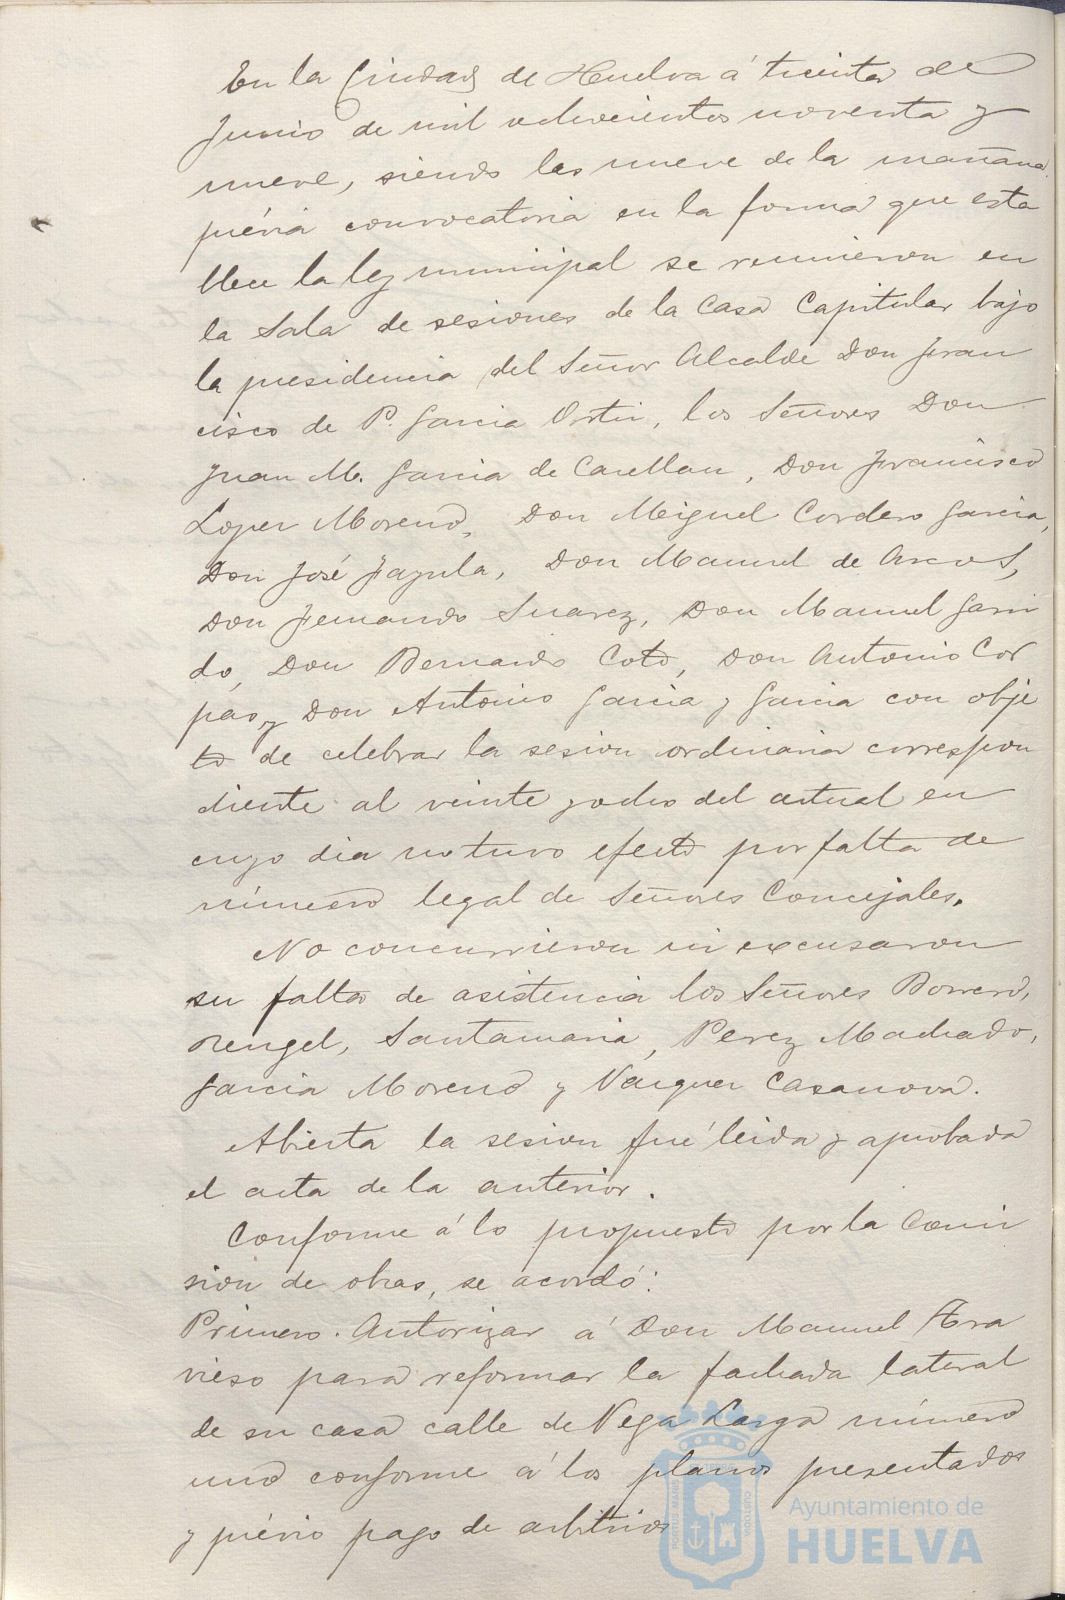 En la Ciudad de Huelva á treinta de
Junio de mil ochocientos noventa y
nueve, siendo las nueve de la mañana
prévia convocatoria en la forma que esta
blece la ley municipal se reunieron en
la Sala de sesiones de la Casa Capitular bajo
la presidencia del Señor Alcalde Don Fran
cisco de P. Garcia Ortiz, los Señores Don
Juan M. Garcia de Carellan, Don Francisco
Lopez Moreno, Don Miguel Cordero Garcia,
Don José Jazula, Don Manuel de Arcos,
Don Fernando Suarez, Don Manuel Garri
do, Don Bernardo Coto, Don Antonio Cor
pas, y Don Antonio Garcia y Garcia con obje
to de celebrar la sesion ordinaria correspon
diente al veinte y ocho del actual en
cuyo dia no tuvo efecto por falta de
número legal de Señores Concejales.
No concurrieron ni excusaron
su falta de asistencia los Señores Borrero,
Rengel, Santamaria, Perez Machado,
Garcia Moreno y Vazquez Casanova.
Abierta la sesion fué leida y aprobada
el acta de la anterior.
Conforme á lo propuesto por la Comi
sion de obras, se acordó:
Primero. Autorizar á Don Manuel Tra
vieso para reformar la fachada lateral
de su casa calle de Vega Larga número
uno conforme á los planos presentados
y prévio pago de arbitrios
PORTUS MARIS ET TERRAE CUSTODIA
Ayuntamiento de
HUELVA